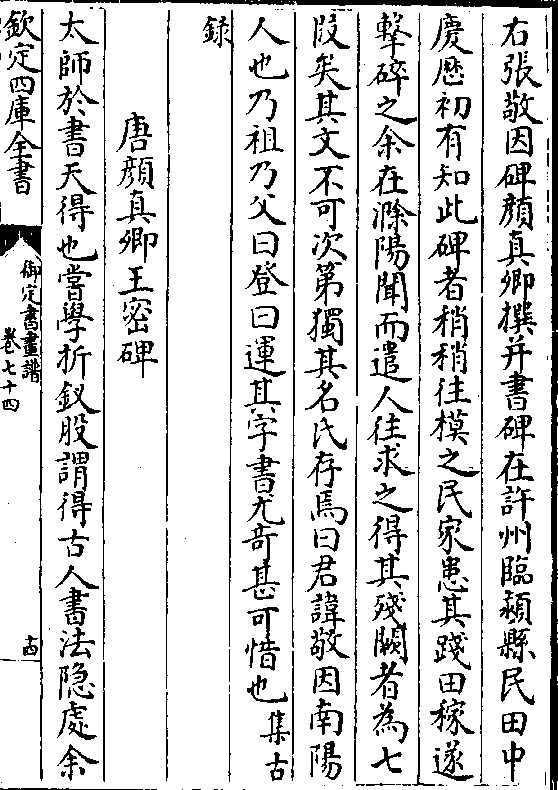 右張敬因碑顔真卿撰并書碑在許州臨潁縣民田中
慶厯初有知此碑者稍稍往模之民家患其踐田稼遂
擊碎之余在滁陽聞而遣人往求之得其殘闕者為七
段矣其文不可次第獨其名氏存焉曰君諱敬因南陽
人也乃祖乃父曰登曰運其字書尤竒甚可惜也集古
録
唐顔真卿王密碑
太師於書天得也嘗學折釵股謂得古人書法隐處余
欽定四庫全書
御定書畫譜
卷七十四
十四